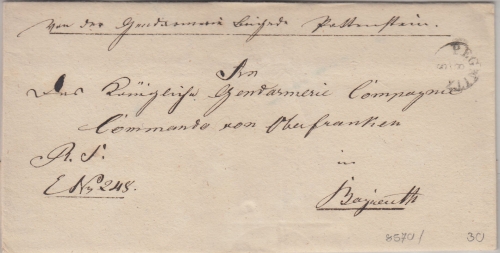 Von der Gendarmerie Brigade Pottenstein.
PEGNITZ
An
Das Königliche Gendarmerie Compagnie
Commando von Oberfranken
R. S.
E No 248.
in
Bayreuth
8570/ 30